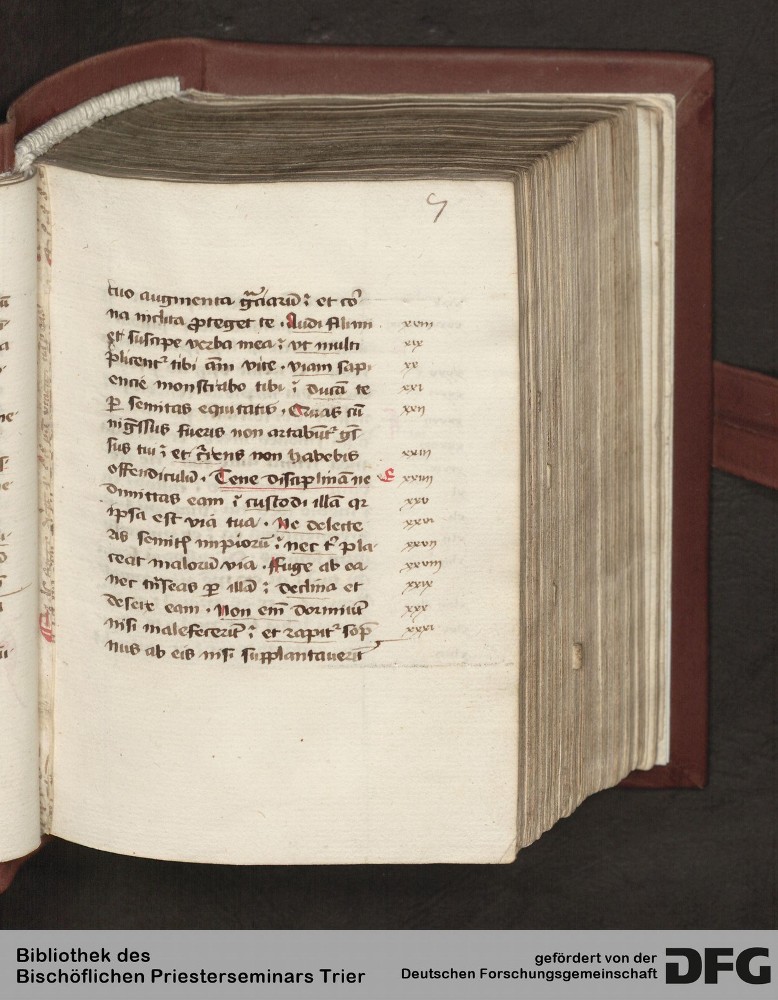 tuo augmenta gr̄aciarū : et co
na inclita proteget te . Audi fili mi xviii
et suscipe verba mea : vt multi xix
plicent᷑ tibi an̄i vite . viam sapi xx
encie monstrabo tibi : ducā te xxi
ꝑ semitas equitatis . Quas cū xxii
nigr̄ssus fueris non artabūt᷑ gr̄s
sus tui : et cr̄rens non habebis xxiii
offendiculū . Tene disciplinā ne E xxiiii
dimittas eam : custodi illā qr xxv
ipsa est via tua . Ne delecte xxvi
ris semit᷑ impiorū : nec t᷑ pla xxvii
ceat malorū via . Fuge ab ea xxviii
nec tn̄seas ꝑ illā : declina et xxix
desere eam . Non em̄ dormiūt xxx
nisi malefecerīt : et rapit᷑ sop̄ xxxi
nus ab eis nisi supplantauerīt
Bibliothek des
Bischöflichen Priesterseminars Trier
gefördert von der
Deutschen Forschungsgemeinschaft
DFG